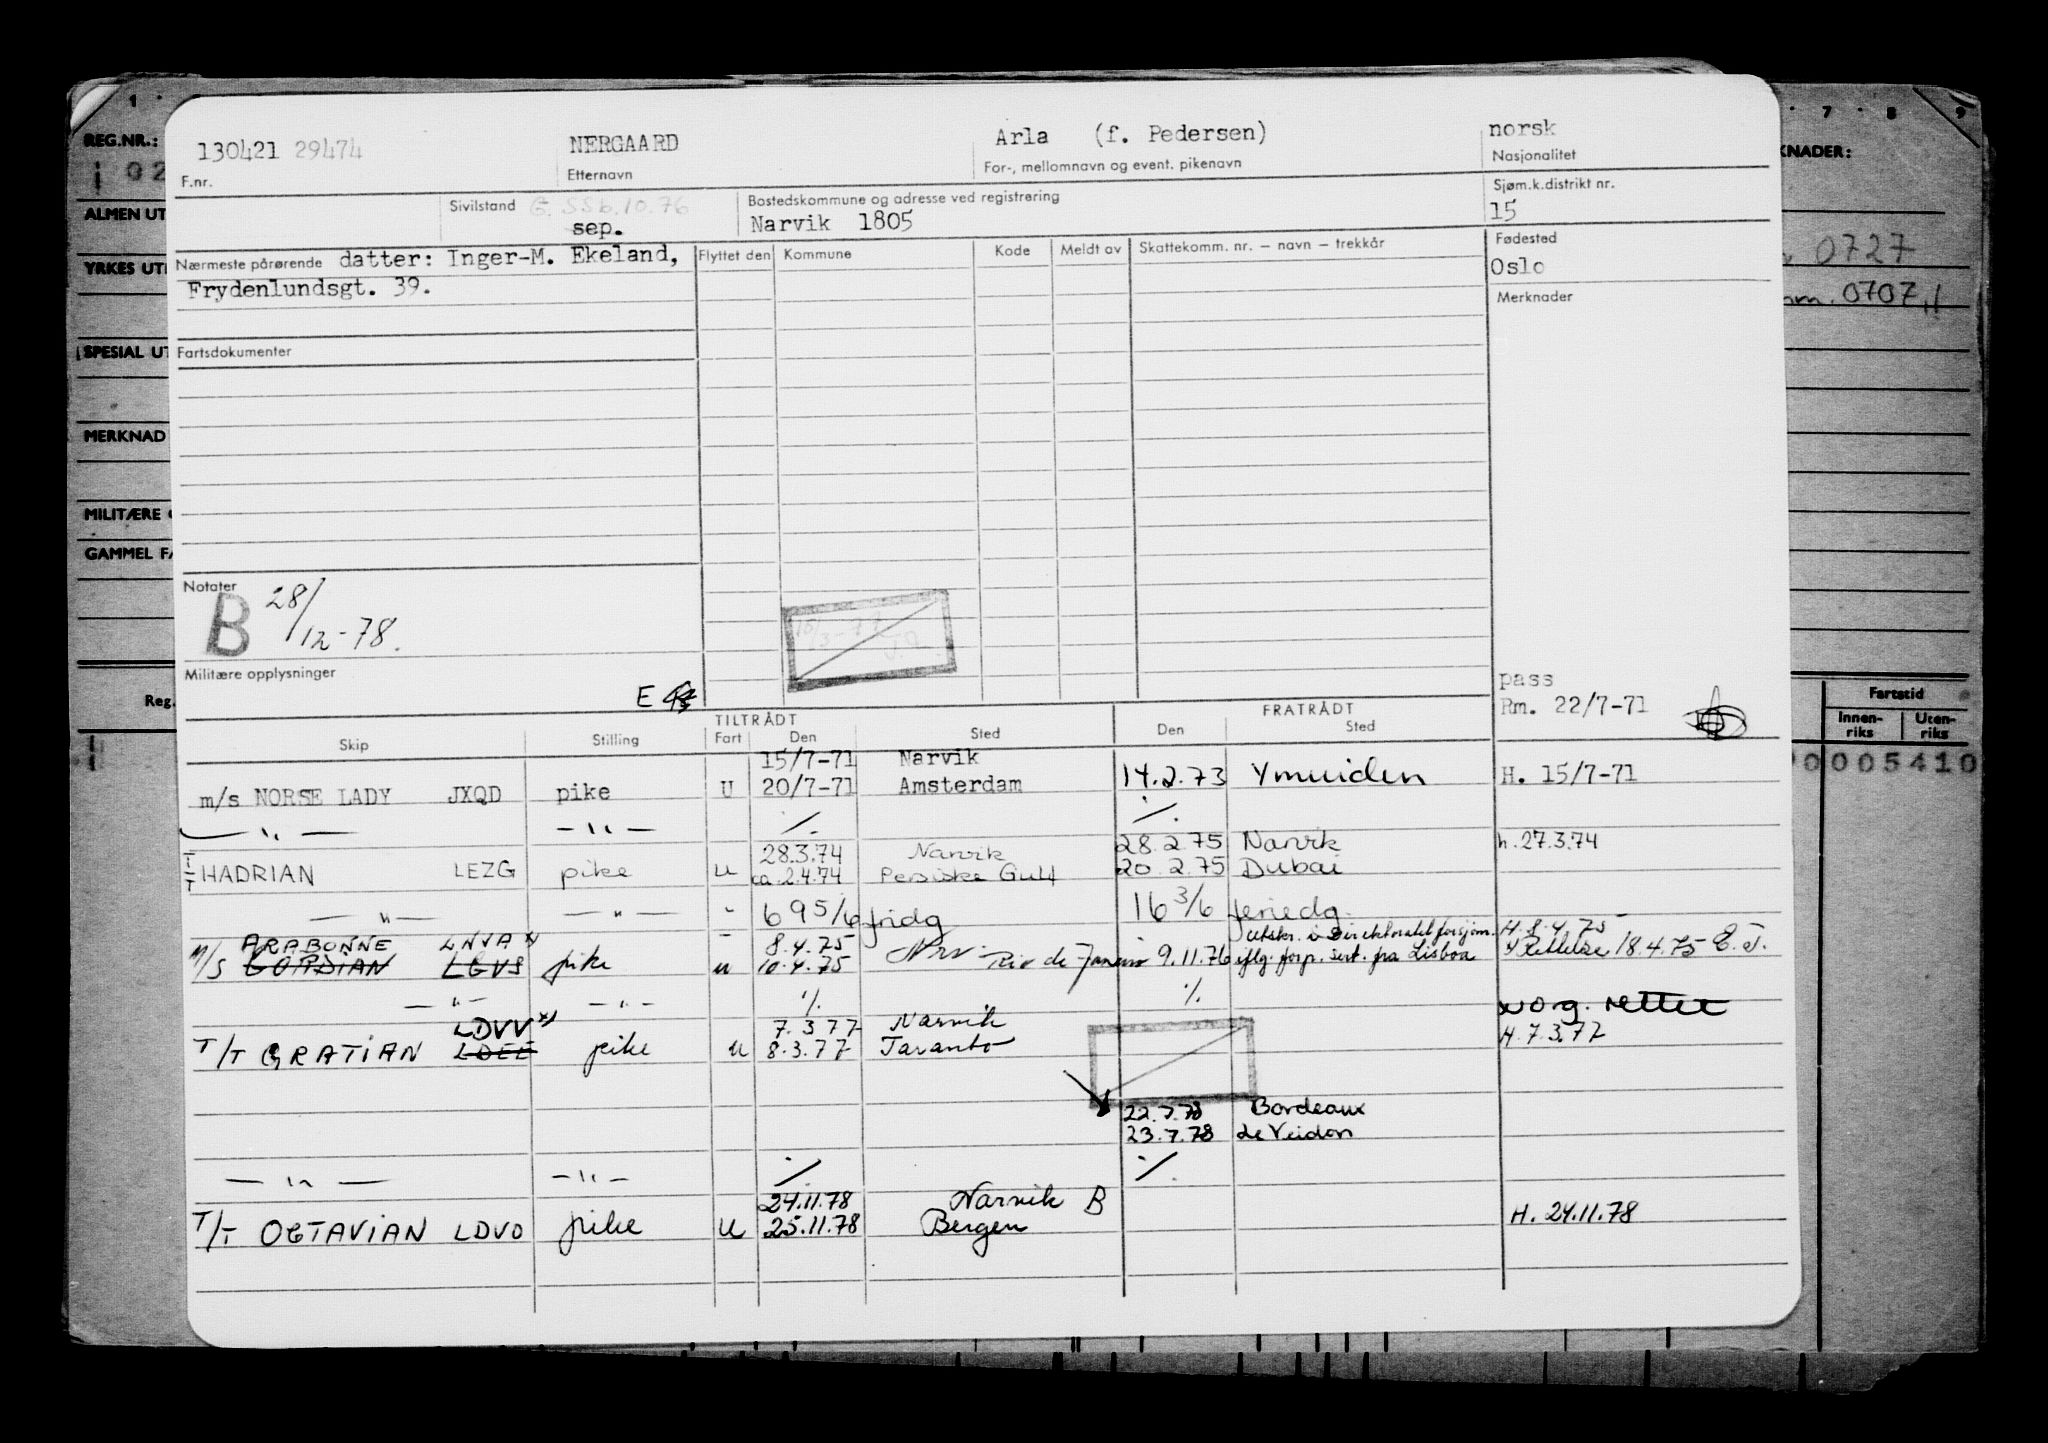 1 7 8 9
REG.NR.: KNADER:
130421 29474 NERGAARD Arla (f. Pedersen) norsk
F.nr. Etternavn For-, mellomnavn og event. pikenavn Nasjonalitet
i 02
ALMEN UT
Sivilstand G. SSb.10.76 Bostedskommune og adresse ved registrering Sjøm.k.distrikt nr.
sep. Narvik 1805 15
YRKES UT 0727
Nærmeste pårørende datter: Inger-M. Ekeland, Flyttet den Kommune Kode Meldt av Skattekomm. nr. – navn – trekkår Fødested
Frydenlundsgt. 39. Oslo
0707,11
Merknader
SPESIAL UT
Fartsdokumenter
MERKNAD
MILITÆRE
GAMMEL FA
Notater
B 28/12-78.
15/3-77
Militære opplysninger
E
pass
Rm. 22/7-71
Reg. Fartstid
Innen-riks Uten-riks
TILTRÅDT FRATRÅDT
Skip Stilling Fart Den Sted Den Sted
15/7-71 Narvik
m/s NORSE LADY JXQD pike U 20/7-71 Amsterdam 14.2.73 Ymuiden H. 15/7-71
0005410
— " — — " — ·/. ·/.
28.3.74 Narvik 28.2.75 Narvik h. 27.3.74
T/T HADRIAN LEZG pike u ca. 2.4.74 Persiske Gulf 20.2.75 Dubai
— " — — " — - 695/6 fridg 16 3/6 feriedg.
ARABONNE LNVA x) 8.4.75 Nrv. Utskr. i Direktoratet for sjøm. H. 8.4.75
M/S GORDIAN LGVS pike u 10.4.75 Rio de Janeiro 9.11.76 iflg. forp. sert. fra Lisboa x) Rettelse 18.4.75 E.T.
— " — — " — ·/. ·/.
x) org. rettet
LDVV x) 7.3.77 Narvik H. 7.3.77
T/T GRATIAN LDEE pike u 8.3.77 Taranto
22.7.78 Bordeaux
23.7.78 Le Veidon
— " — — " — ·/. ·/.
24.11.78 Narvik B
T/T OCTAVIAN LDVO pike U 25.11.78 Bergen H. 24.11.78